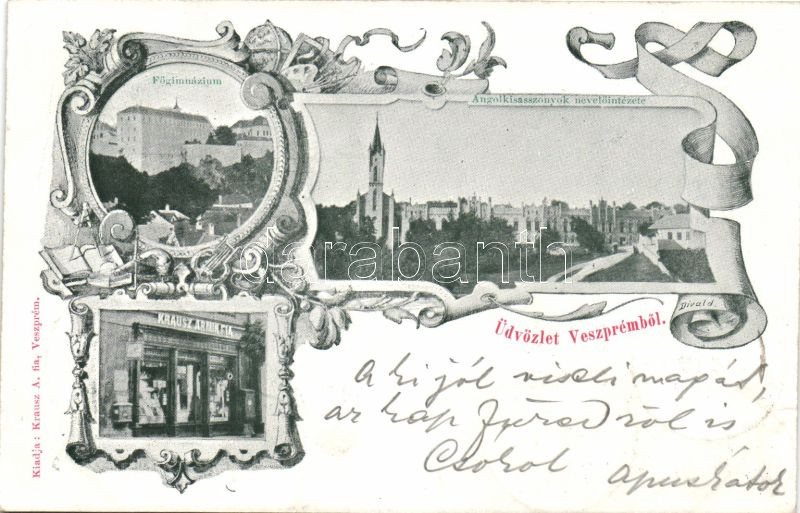 Főgimnázium
Angolkisasszonyok nevelőintézete
KRAUSZ ARMIN FIA
Divald
Üdvözlet Veszprémből.
Kiadja: Krausz A. fia, Veszprém.
A ki jól viseli magát,
az kap Füredről is
Csokol apuskátok
darabanth